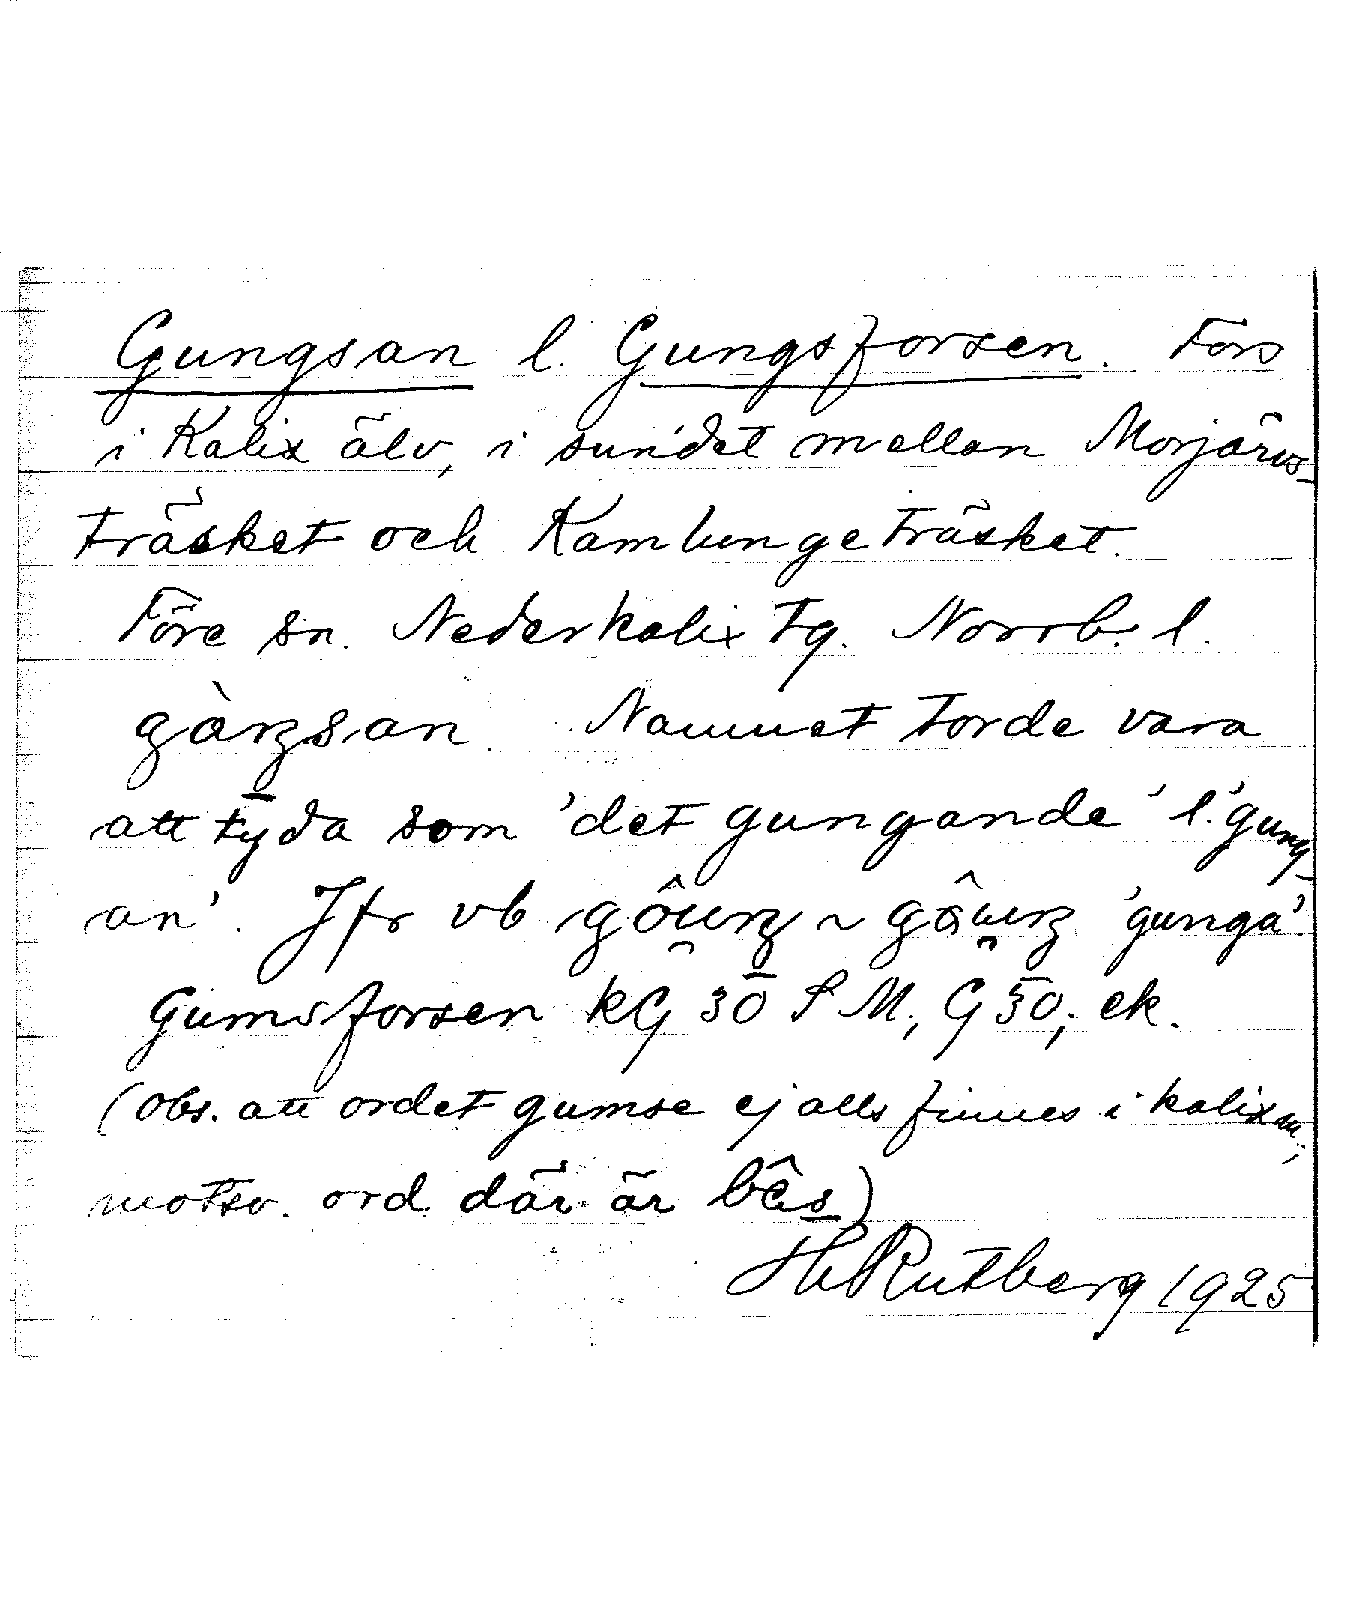 Gungsan l. Gungsforsen. Fors
i Kalix älv, i sundet mellan Morjärvs-
träsket och Kamlungeträsket.
Före sn. Nederkalix tg. Norrb. l.
gàŋsan. Namnet torde vara
att tyda som 'det gungande' l. 'gung-
an'. Jfr vb gôuŋ ~ 'gunga'.
Gumsforsen kG 30 S M, G 30, ek.
(obs. att ordet gumse ej alls finnes i kalixm,
motsv. ord där är bês)
H Rutberg 1925